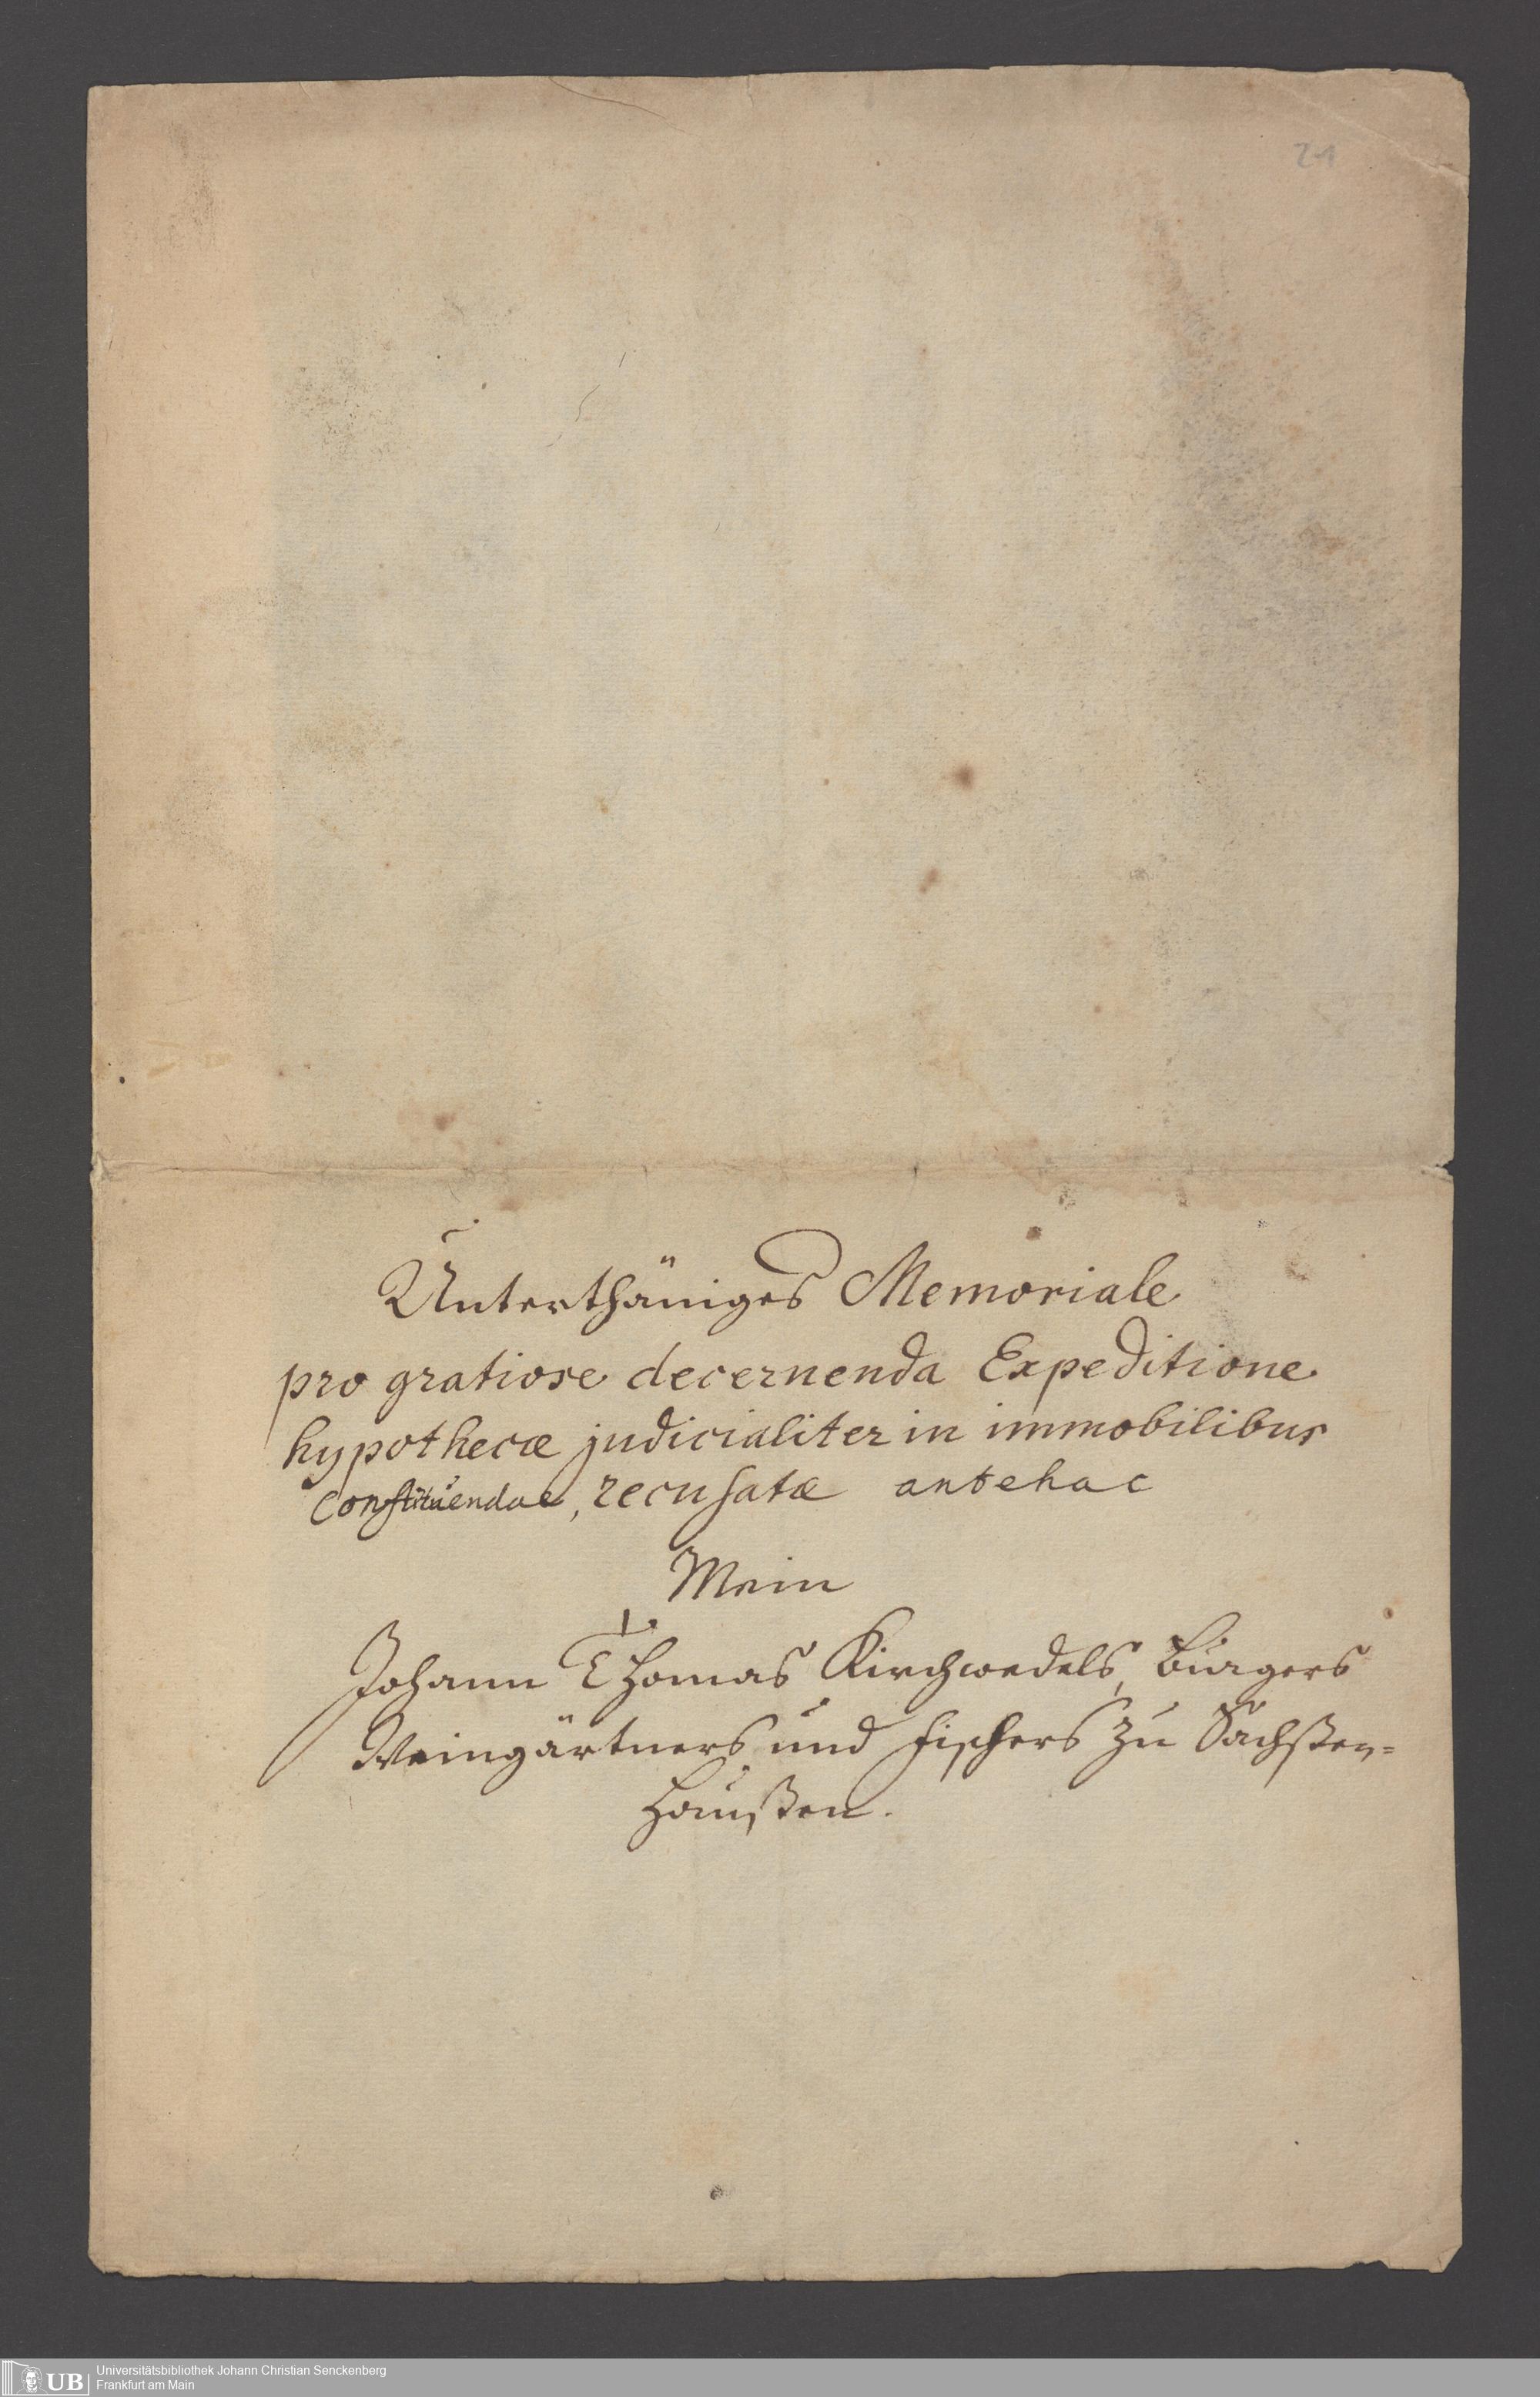 21
Unterthäniges Memoriale
pro gratiose decernenda Expeditione
hypothecæ judicialiter in immobilibus
Constituendae, recusatæ antehac
Mein
Johann Thomas Kirchwedels, Bürgers
Weingärtners und Fischers zu Sachßen-
Haußen.
UB
Universitätsbibliothek Johann Christian Senckenberg
Frankfurt am Main